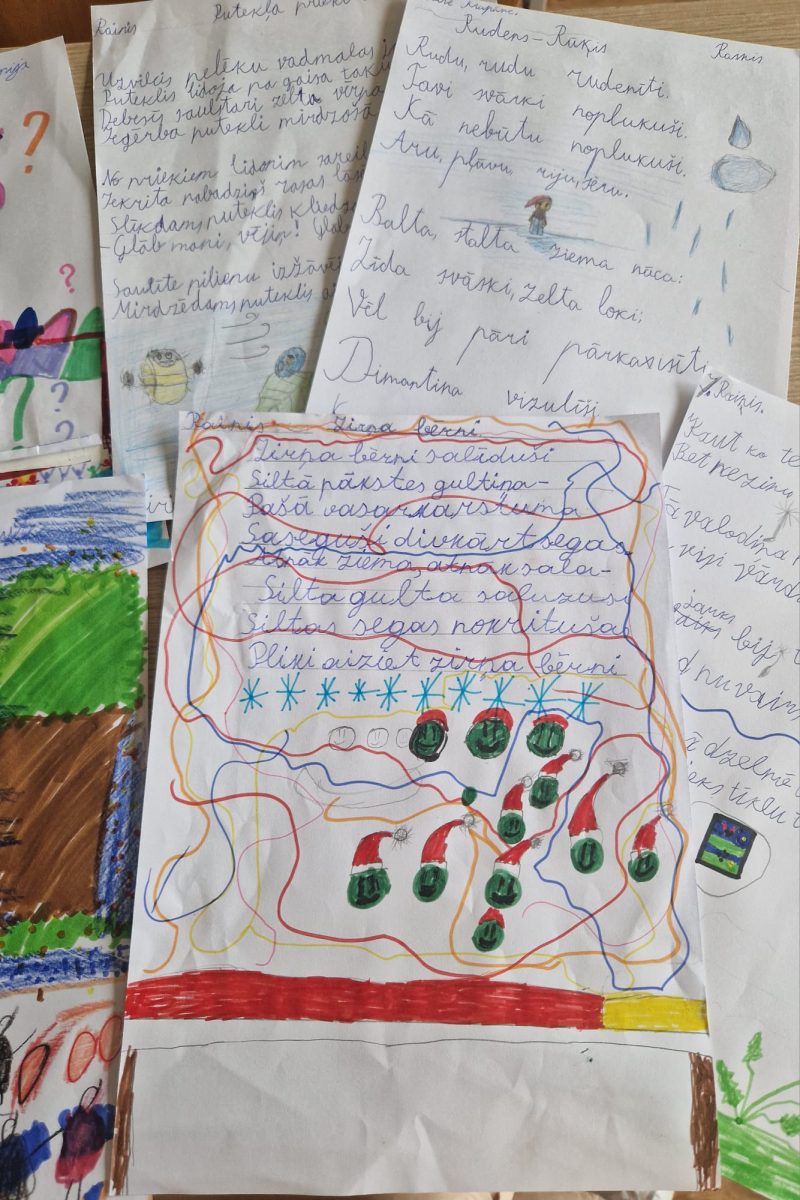 Rainis
Putekļa prieki
Uzvilcis pelēku vadmalas
Puteklis lidoja pa gaisa
Debesīs saulstari zelta virpa
Ieģērba putekli mirdzošā
No priekiem lidonim
Iekrita nabadziņš rasas
Slīkdams, puteklis kliedza
-Glāb mani, vējiņ! Glāb
Saulīte pilienu izžāvē
Mirdzēdams puteklis
Rudens-Rūķis
Rainis
Rudu, rudu rudenīti.
Tavi svārki noplukuši.
Kā nebūtu noplukuši.
Aru, pļāvu, riju, sēru.
Balta, stalta ziema nāca:
Zīda svārki, zelta loki;
Vēl bij pāri pārkaisīti
Dimantiņa vizulīši.
Rainis.
Zirņa bērni
Zirņa bērni salīduši
Siltā pākstes gultiņa-
Pašā vasarkarstuma
Saseguši divkārt segas
Atnāk ziema, atnāk sala-
Silta gulta saluzusi
Siltas segas nokritušas
Pliki aiziet zirņa bērni
Rainis.
Kaut ko
Bet nezinu
valodiņa
viņi
bij
dzelmē